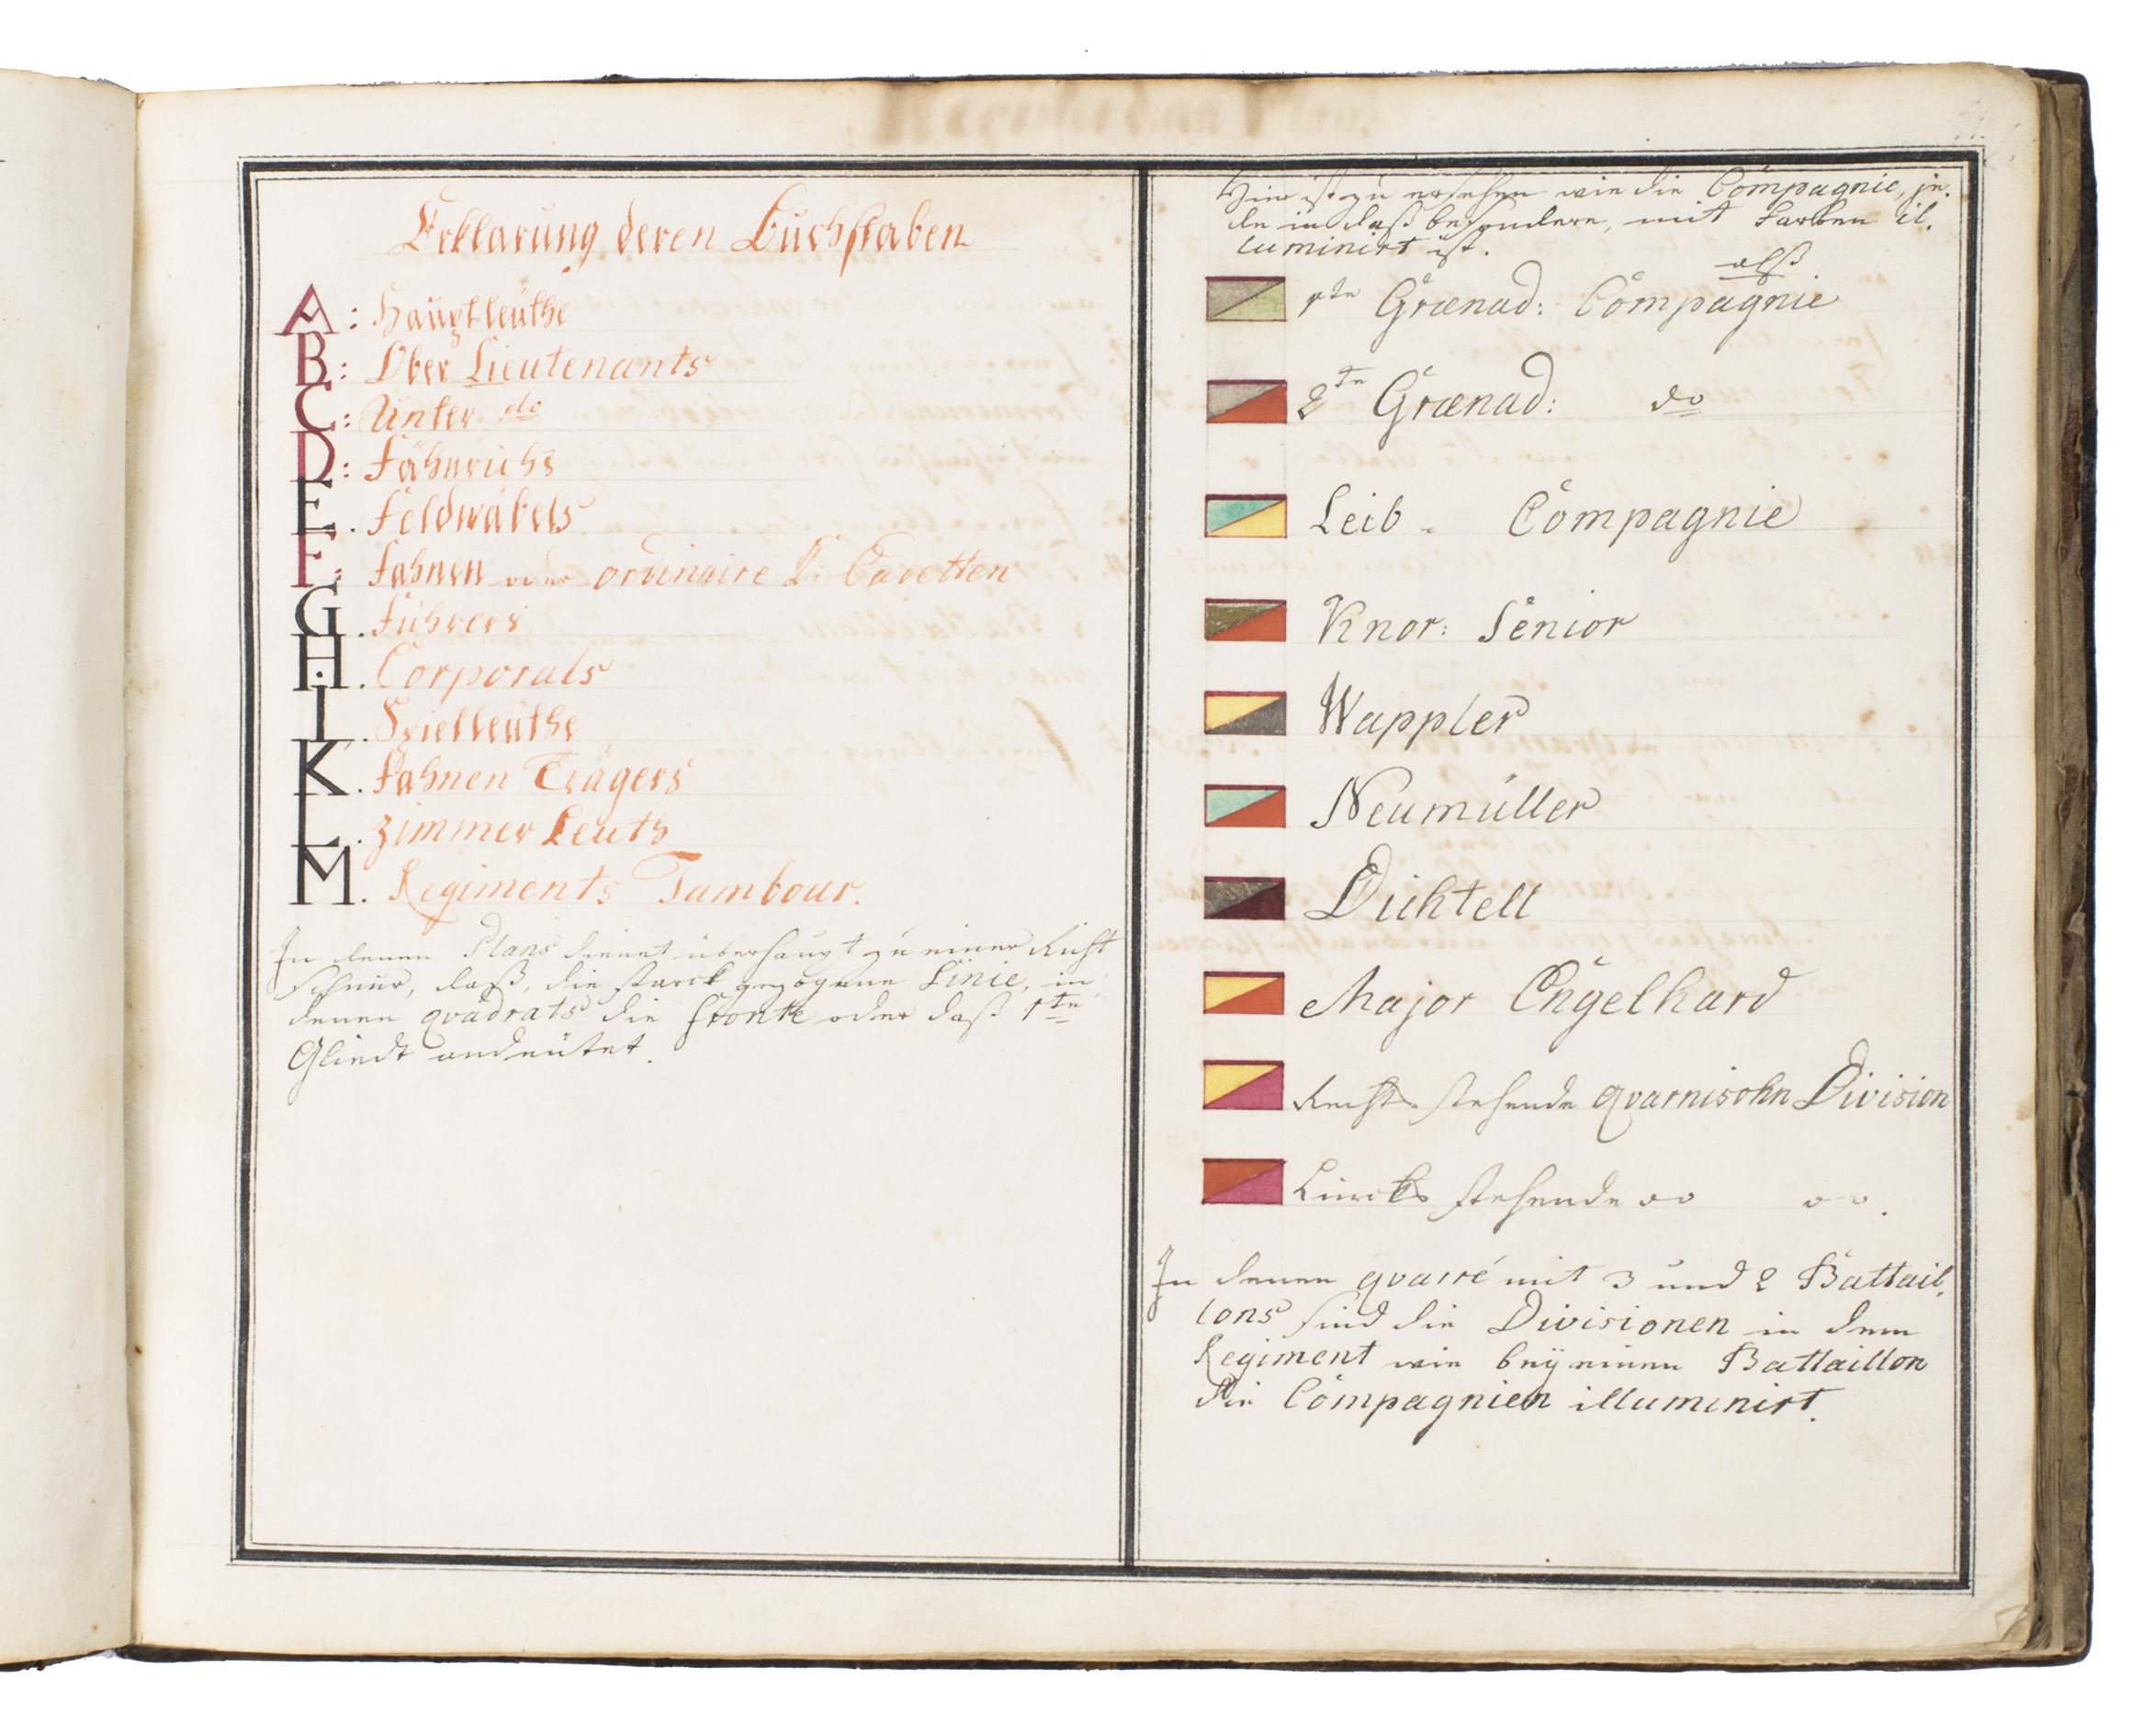 Erklärung deren Buchstaben
A: Hauptleüthe
B: Ober Lieutenants
C: Unter do
D: Fähnrichs
E. Feldwäbels
F: Fahnen oder ordinaire K: Cadetten
G. Führers
H. Corporals
I. Spielleüthe
K. Fahnen Trägers
L. Zimmer Leuth
M. Regiments Tambour.
In denen Plans dienet überhaupt zu einer Richt
schnur, daß, die starck gezogene Linie, in
denen quadrats die fronte oder daß 1te
Gliedt andeütet.
Hier ist zu ersehen wie die Compagnie, je-
de in daß besondere, mit Farben il-
luminirt ist.
alß
1te Grænad: Compagnie
2te Grænad: do
Leib - Compagnie
Knor: Senior
Wappler
Neumüller
Dichtell
Major Engelhard
Rechts stehende quarnisohn Division
Lincks stehende do do.
In denen quarré mit 3 und 2 Battail-
lons sind die Divisionen in dem
Regiment wie beÿ einen Battaillon
die Compagnien illuminirt.